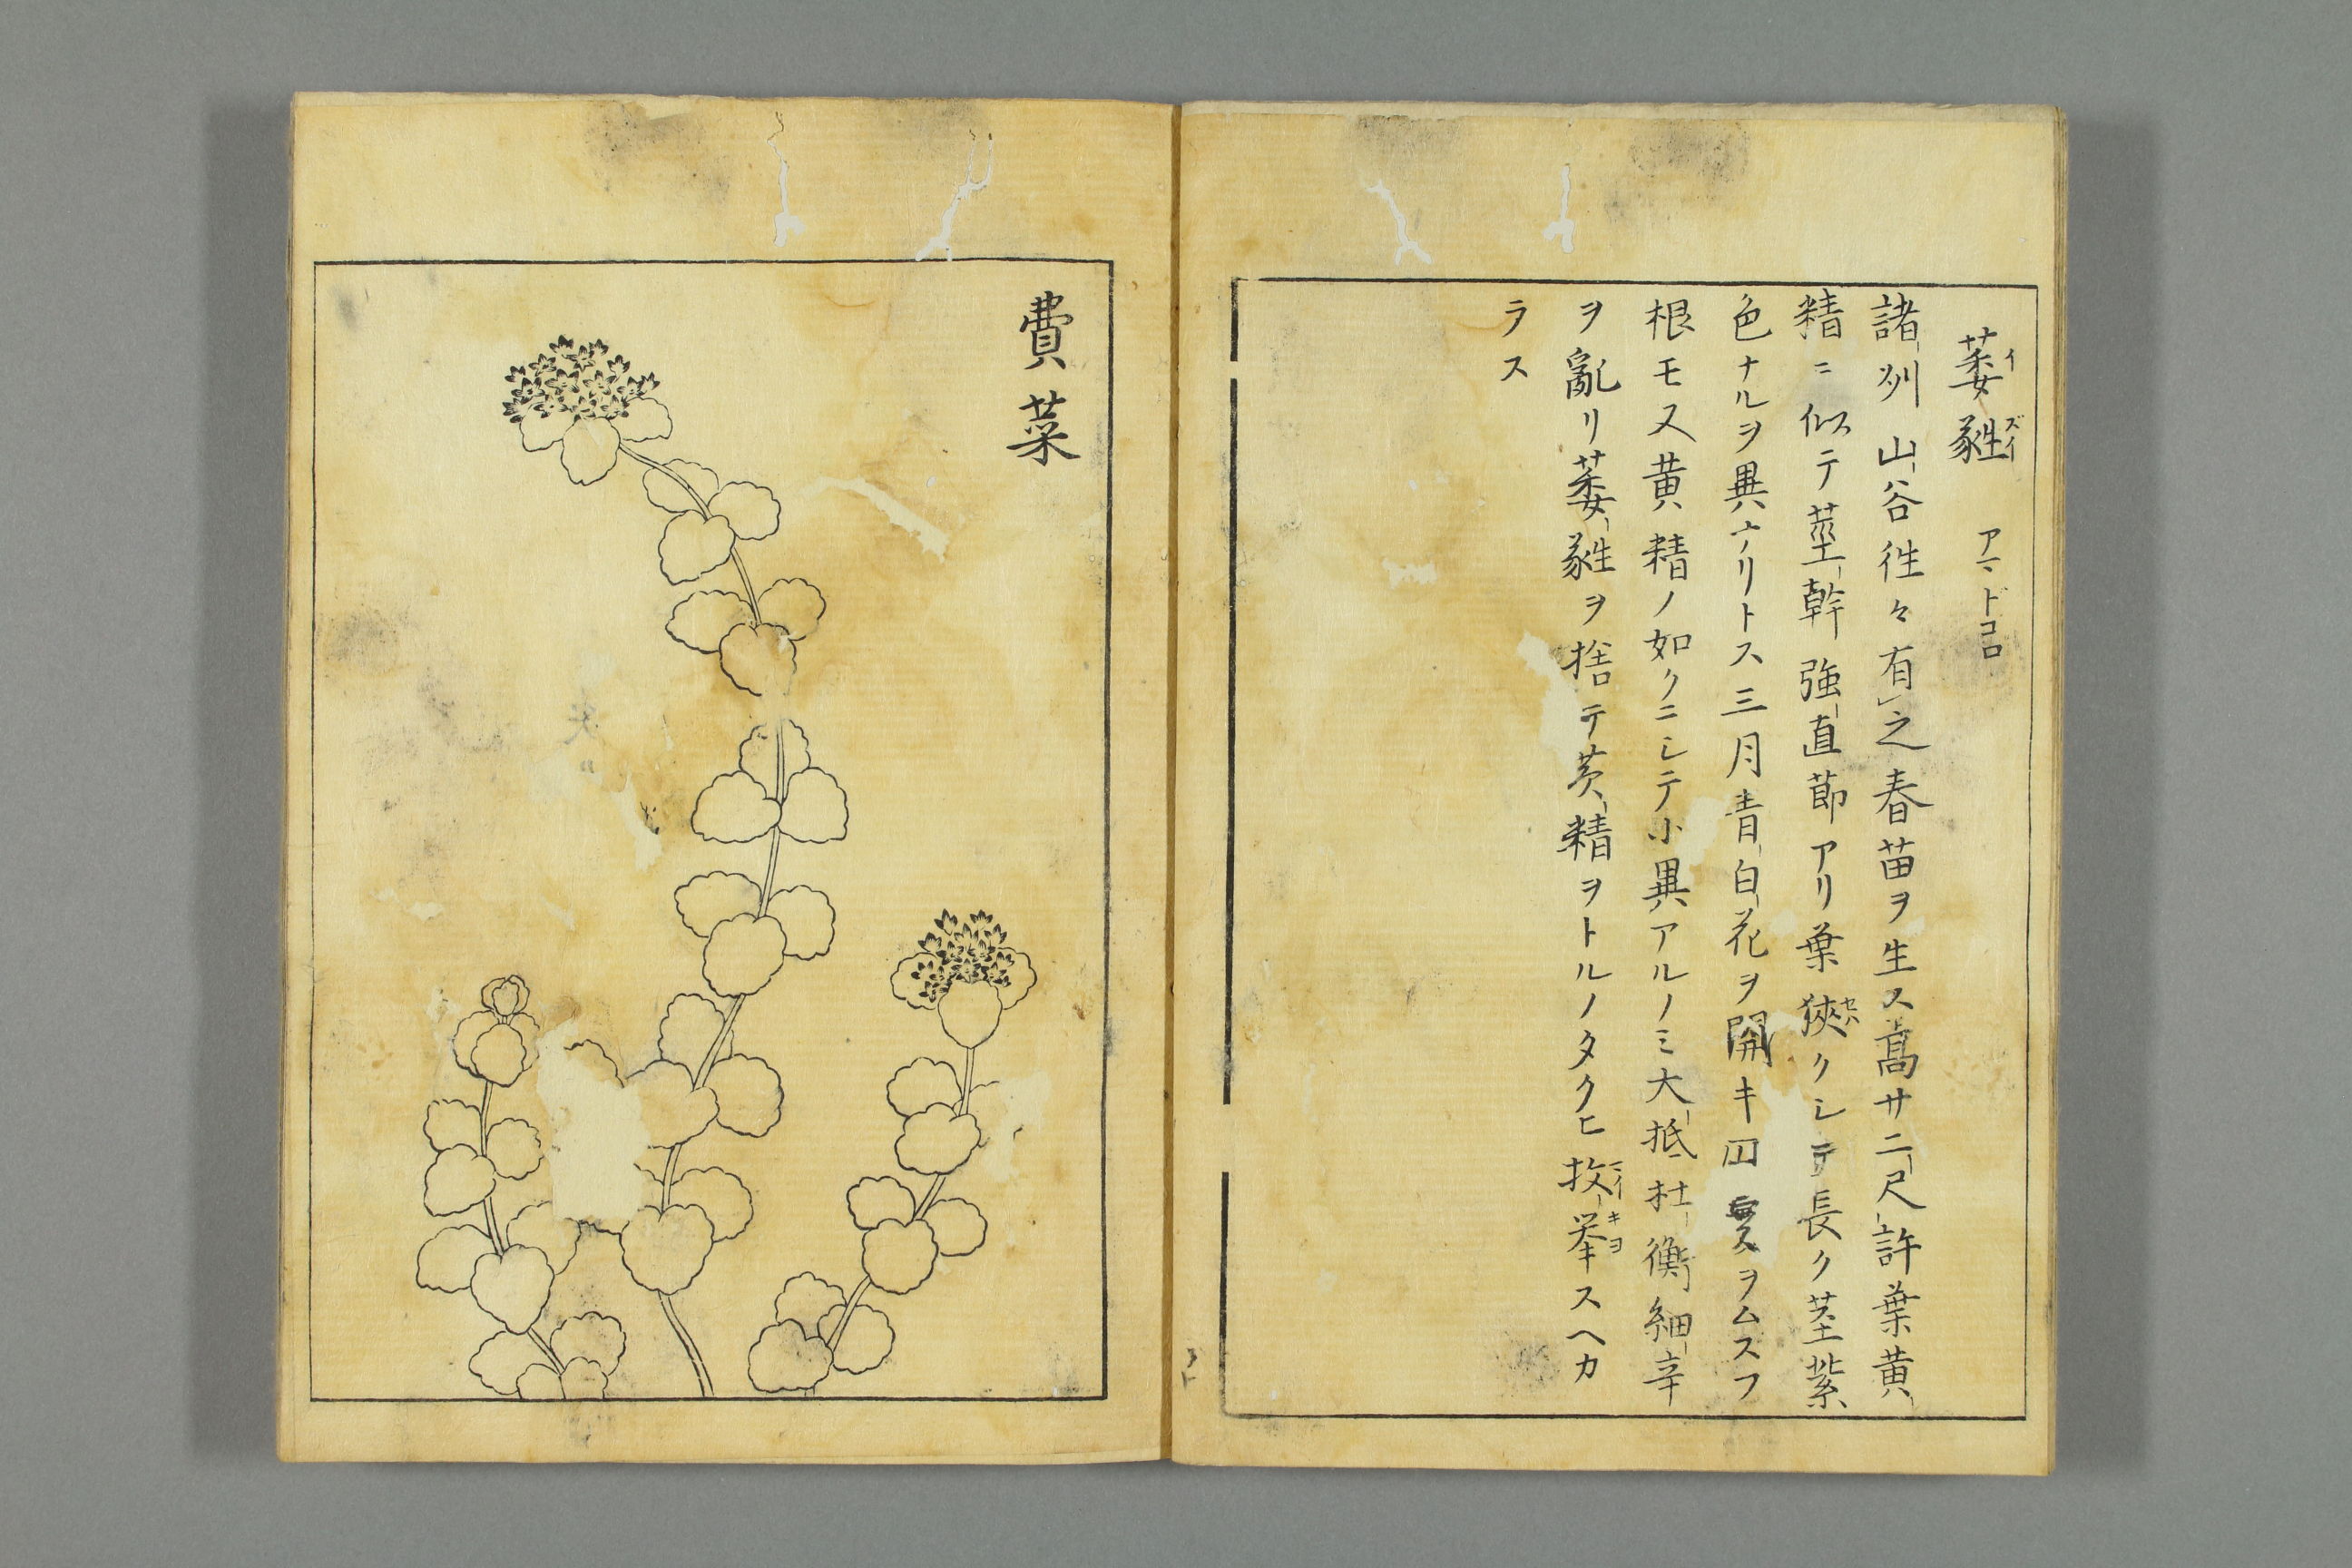 萎蕤 アマドコロ
イ ズイ
諸州山谷徃々有之春苗ヲ生ス高サ二尺許葉黄
精ニ似テ莖幹強直節アリ葉狹クシテ長ク茎紫
色ナルヲ異ナリトス三月青白花ヲ開キ四 ヲムスフ
根モ又黄精ノ如クニシテ小異アルノミ大抵杜衡細辛
ヲ亂リ萎蕤ヲ捨テ黄精ヲトルノタクヒ枚挙スヘカ
ラス
費菜